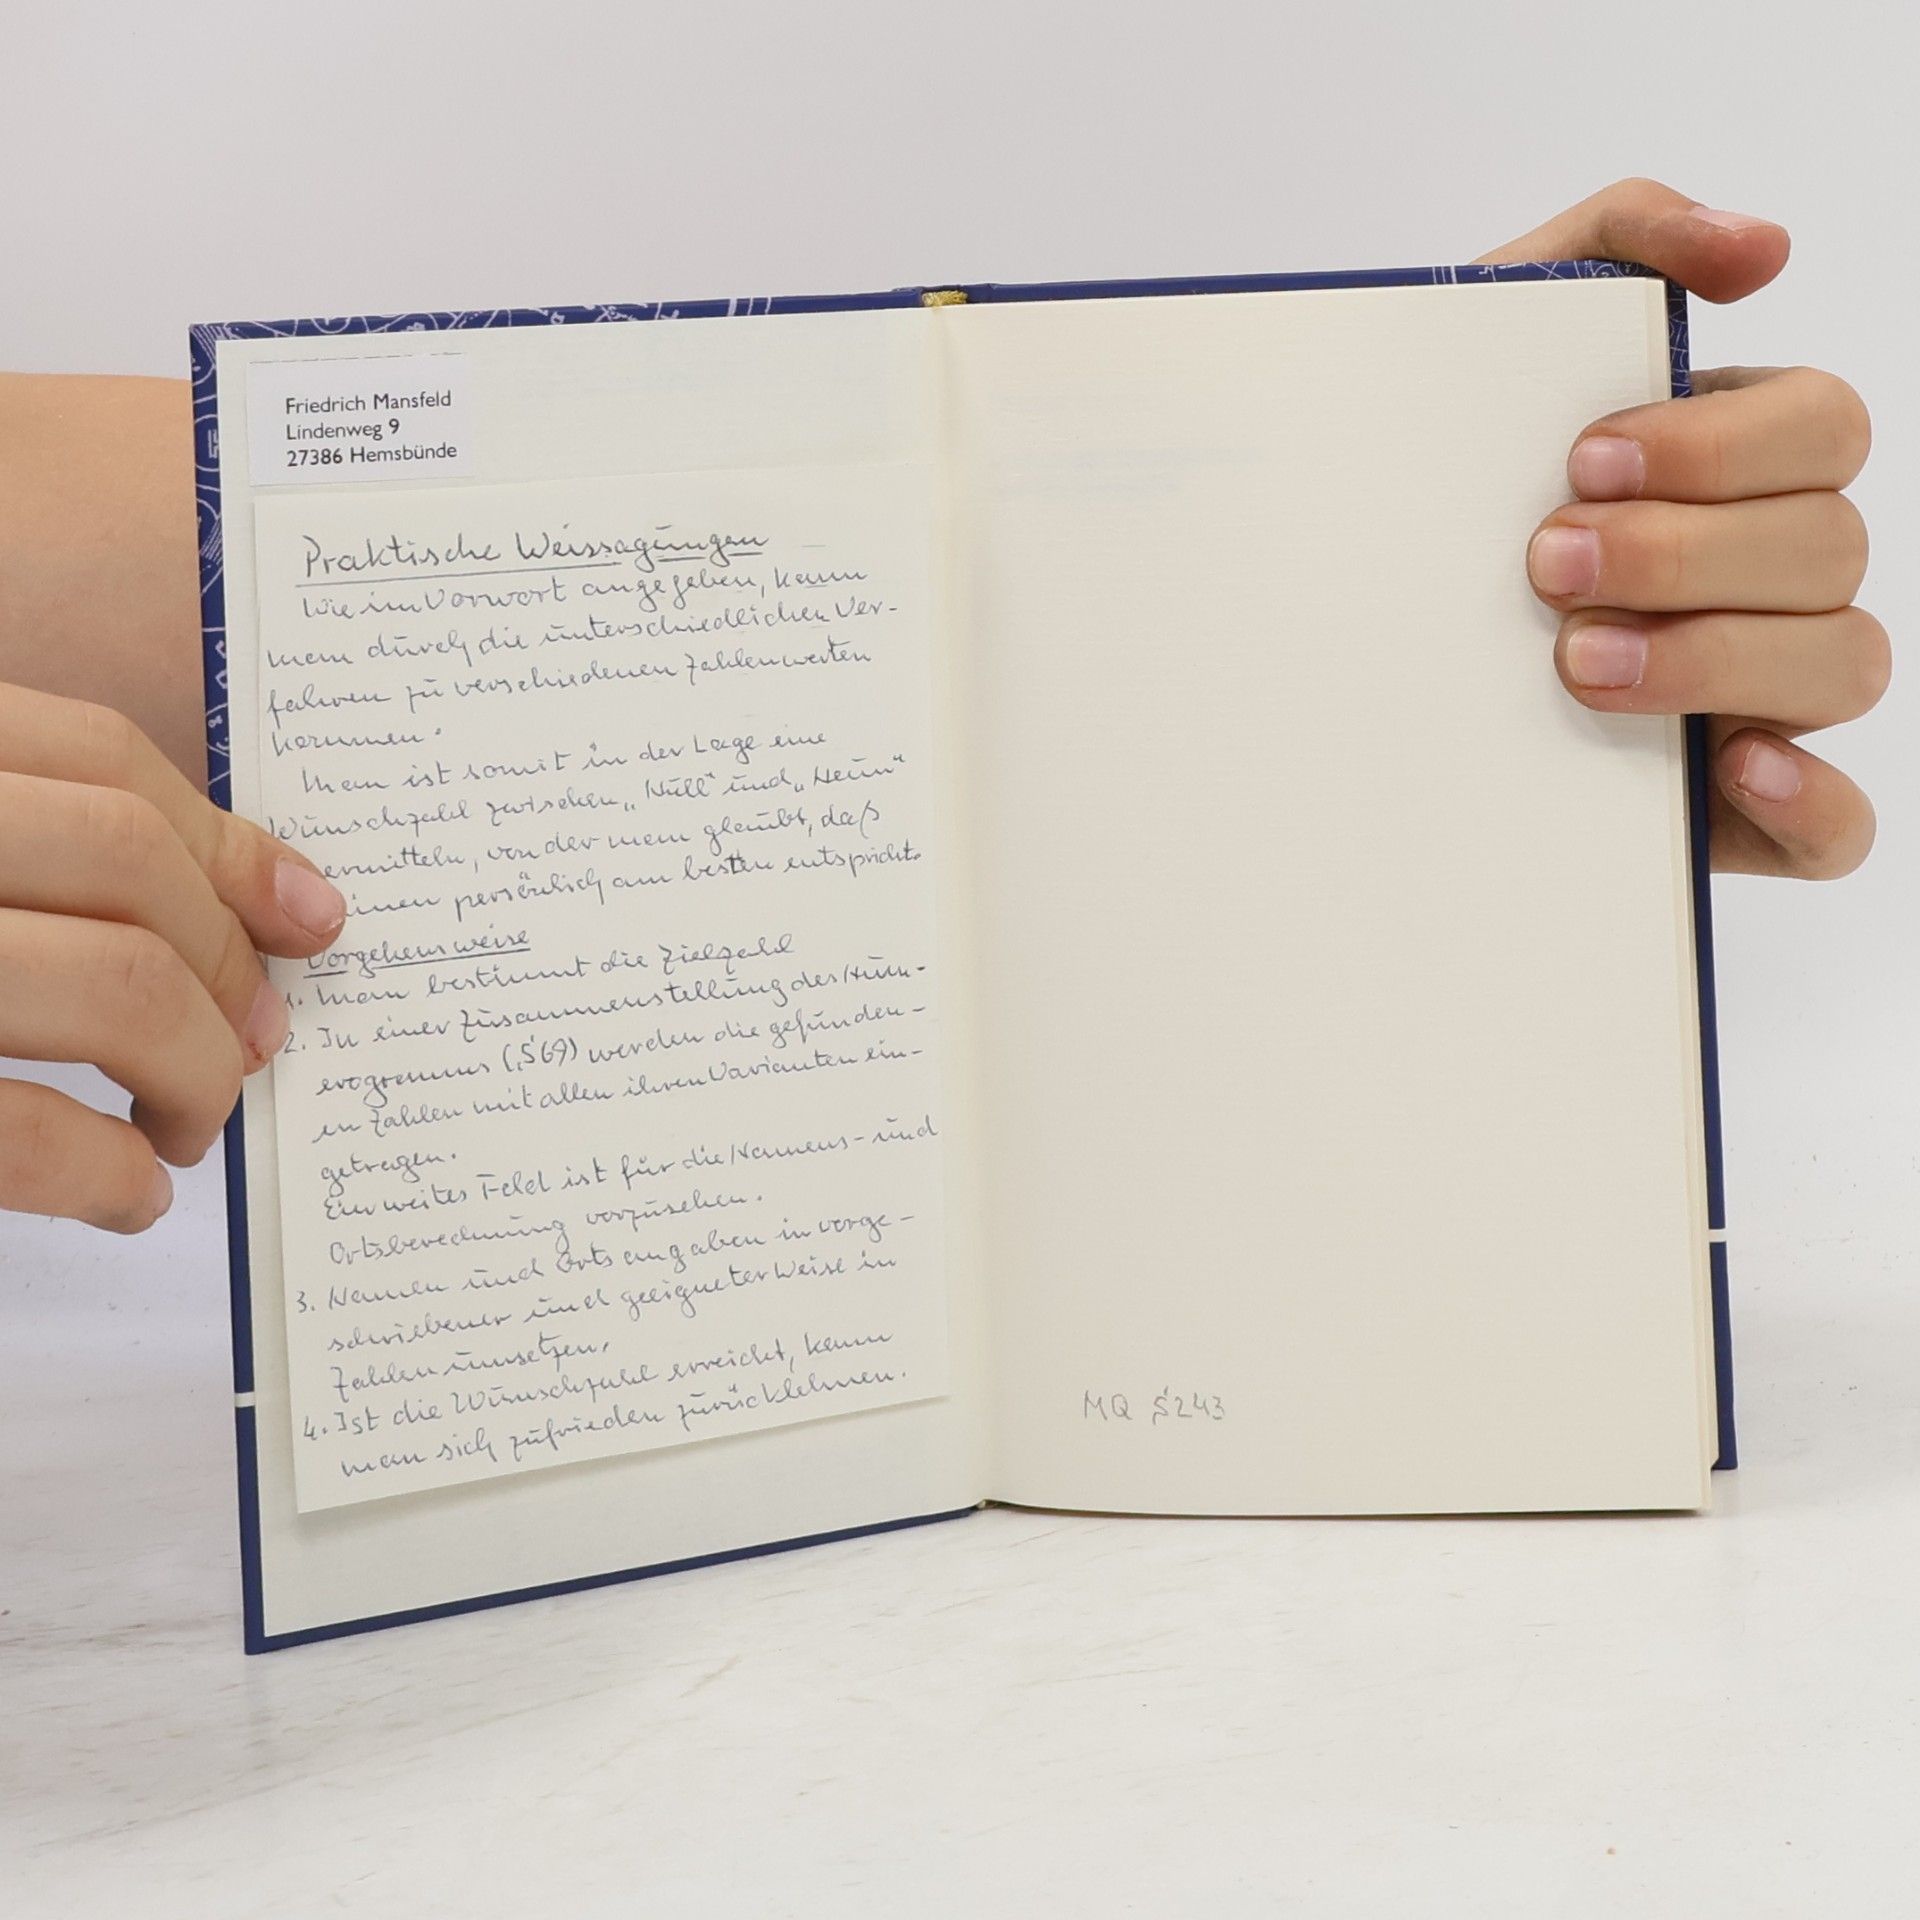 Friedrich Mansfeld
Lindenweg 9
27386 Hemsbünde
Praktische Weissagungen
Wie im Vorwort angegeben, kann
man durch die unterschiedlichen Ver-
fahren zu verschiedenen Zahlenwerten
kommen.
Man ist somit in der Lage eine
Wunschzahl zwischen „Null“ und „Neun“
ermitteln, von der man glaubt, daß
einen persönlich am besten entspricht.
Vorgehensweise
1. Man bestimmt die Zielzahl
2. In einer Zusammenstellung des Num-
erogramms (S69) werden die gefunden-
en Zahlen mit allen ihren Varianten ein-
getragen.
Ein weites Feld ist für die Namens- und
Ortsberechnung vorzusehen.
3. Namen und Ortsangaben in vorge-
schriebener und geeigneter Weise in
Zahlen umsetzen.
4. Ist die Wunschzahl erreicht, kann
man sich zufrieden zurücklehnen.
MQ S243